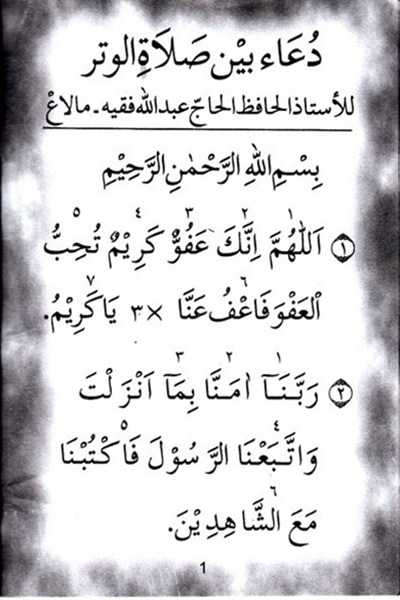 دُعَاء بَيْن صَلَاةِ الوتر
للأستاذ الحافظ الحاجّ عبد الله فقيه - مالاغْ
بِسْمِ اللهِ الرَّحْمٰنِ الرَّحِيْمِ
١ اَللّٰهُمَّ اِنَّكَ عَفُوٌّ كَرِيْمٌ تُحِبُّ
الْعَفْوَ فَاعْفُ عَنَّا ×٣ يَا كَرِيْمُ.
٢ رَبَّنَآ اٰمَنَّا بِمَآ اَنْزَلْتَ
وَاتَّبَعْنَا الرَّسُوْلَ فَاكْتُبْنَا
مَعَ الشَّاهِدِيْنَ.
1